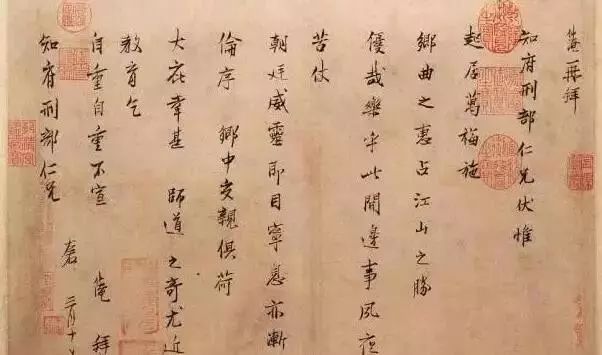 淹再拜
知府刑部仁兄伏惟
起居萬福施
鄉曲之惠占江山之勝
優哉樂乎此間邊事夙夜
苦仗
朝廷威靈即目寧息亦漸
倫序鄉中交親俱荷
大庇幸甚師道之奇尤近
教育乞
自重自重不宣 淹拜
知府刑部仁兄 三月十